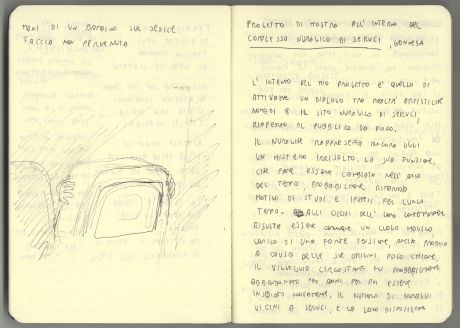 MANI DI UN BAMBINO SUL SEDILE
FACCIA NON PERVENUTA
PROGETTO DI MOSTRA ALL'INTERNO DEL
COMPLESSO NURAGICO DI SERUCI, GONNESA
L'INTENTO DEL MIO PROGETTO È QUELLO DI
ATTIVARE UN DIALOGO TRA REALTÀ ARTISTICHE
E IL SITO NURAGICO DI SERUCI
RIAPERTO AL PUBBLICO DA POCO.
IL NURAGHE RAPPRESENTA ANCORA OGGI
UN MISTERO IRRISOLTO. LA SUA FUNZIONE,
CHE PARE ESSERE CAMBIATA NELL'ARCO
DEL TEMPO, PROBABILMENTE RIMARRÀ
MOTIVO DI STUDI E IPOTESI PER LUNGO
TEMPO. AGLI OCCHI DELL'UOMO CONTEMPORANEO
RISULTA ESSERE COMUNQUE UN LUOGO MAGICO
CARICO DI UNA FORTE TENSIONE, ANCHE PROPRIO
A CAUSA DELLE SUE ORIGINI POCO CHIARE.
IL VILLAGGIO CIRCOSTANTE FU PROBABILMENTE
ABBANDONATO PER ANNI PER POI ESSERE
INSEDIATO NUOVAMENTE. IL NUMERO DI NURAGHI
VICINI A SERUCI, E LA LORO DISPOSIZIONE